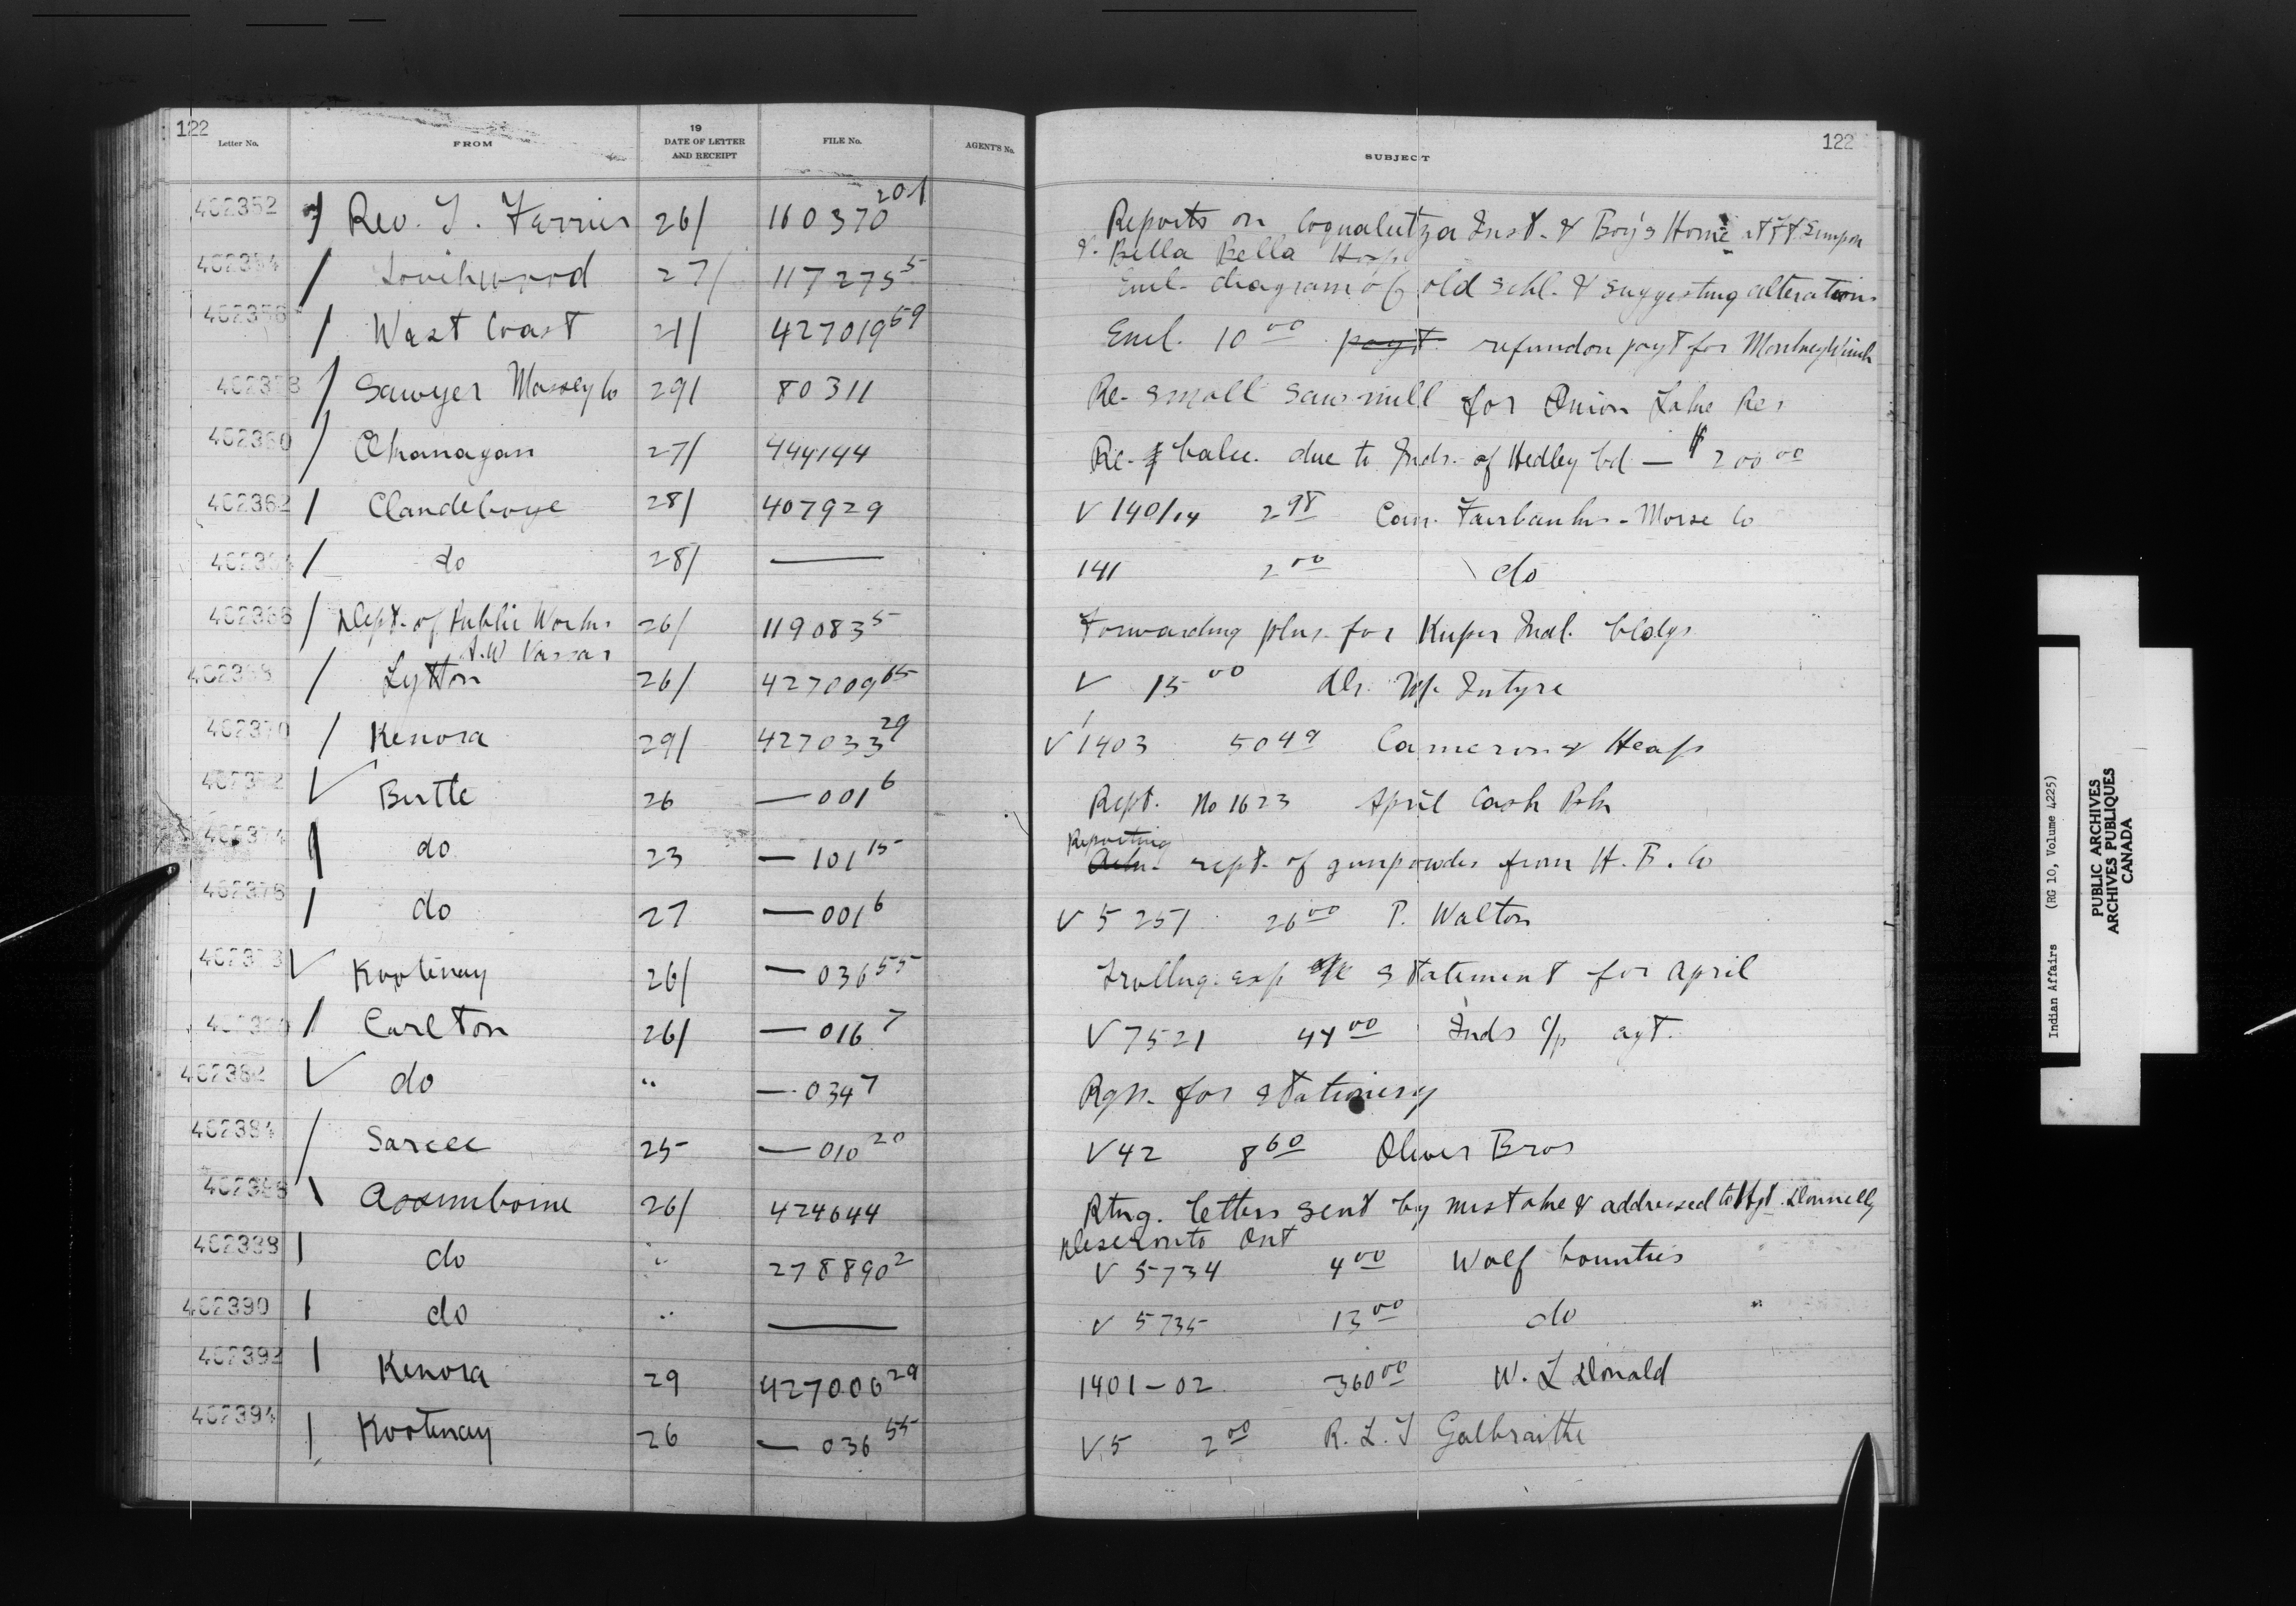 122
Letter No. FROM 19 DATE OF LETTER AND RECEIPT FILE No. AGENT'S No. SUBJECT 122
402352 Rev. T. Ferrier 26/ 160370 20-1 Reports on Coqualeetza Inst. & Boy's Home at Ft. Simpson
& Bella Bella Hosp
402354 27/ 117275 5 Encl. diagram of old schl. & suggesting alterations
West Coast 21/ 427019 59 Encl. 10 00 payt. refund on payt for
Sawyer Massey Co 29/ 80311 Re- small saw mill for Onion Lake Res
402360 Okanagan 27/ 444144 Re- balce. due to Inds. of Hedley Cd — $200 00
402362 Clandeboye 28/ 407929 V 140/14 2 98 Can. Fairbanks-Morse Co
do 28/ — 141 2 00 do
402366 Dept. of Public Works 26/ 119083 5 Forwarding plns. for Kuper Indl. bldgs
A.W Vassar
402368 Lytton 26/ 427009 65 V 15 00 Alx. McIntyre
402370 Kenora 29/ 427033 29 V 1403 50 49 Cameron & Heap
402372 Birtle 26 — 001 6 Rept. No 1623 April Cash
402374 do 23 — 101 15 Reporting rept. of gunpowder from H. B. Co
402376 do 27 — 001 6 V 5257 26 00 P. Walton
Kootenay 26/ — 036 55 Trvllng. exp a/c statement for April
Carlton 26/ — 016 7 V 7521 44 00 Inds c/p agt.
402382 do " — 034 7 Rqn. for stationery
402384 Sarcee 25 — 010 20 V 42 8 60 Oliver Bros
Assiniboine 26/ 424644 Rtng. letters sent by mistake & addressed to Agt. Donnelly
Deseronto Ont
402388 do " 278890 2 V 5734 4 00 Wolf bounties
402390 do " — V 5735 13 00 do
402392 Kenora 29 427006 29 1401-02 360 00 W. L Donald
402394 Kootenay 26 — 036 55 V 5 2 00 R. L. T Galbraithe
Indian Affairs (RG 10, Volume 4225)
PUBLIC ARCHIVES
ARCHIVES PUBLIQUES
CANADA